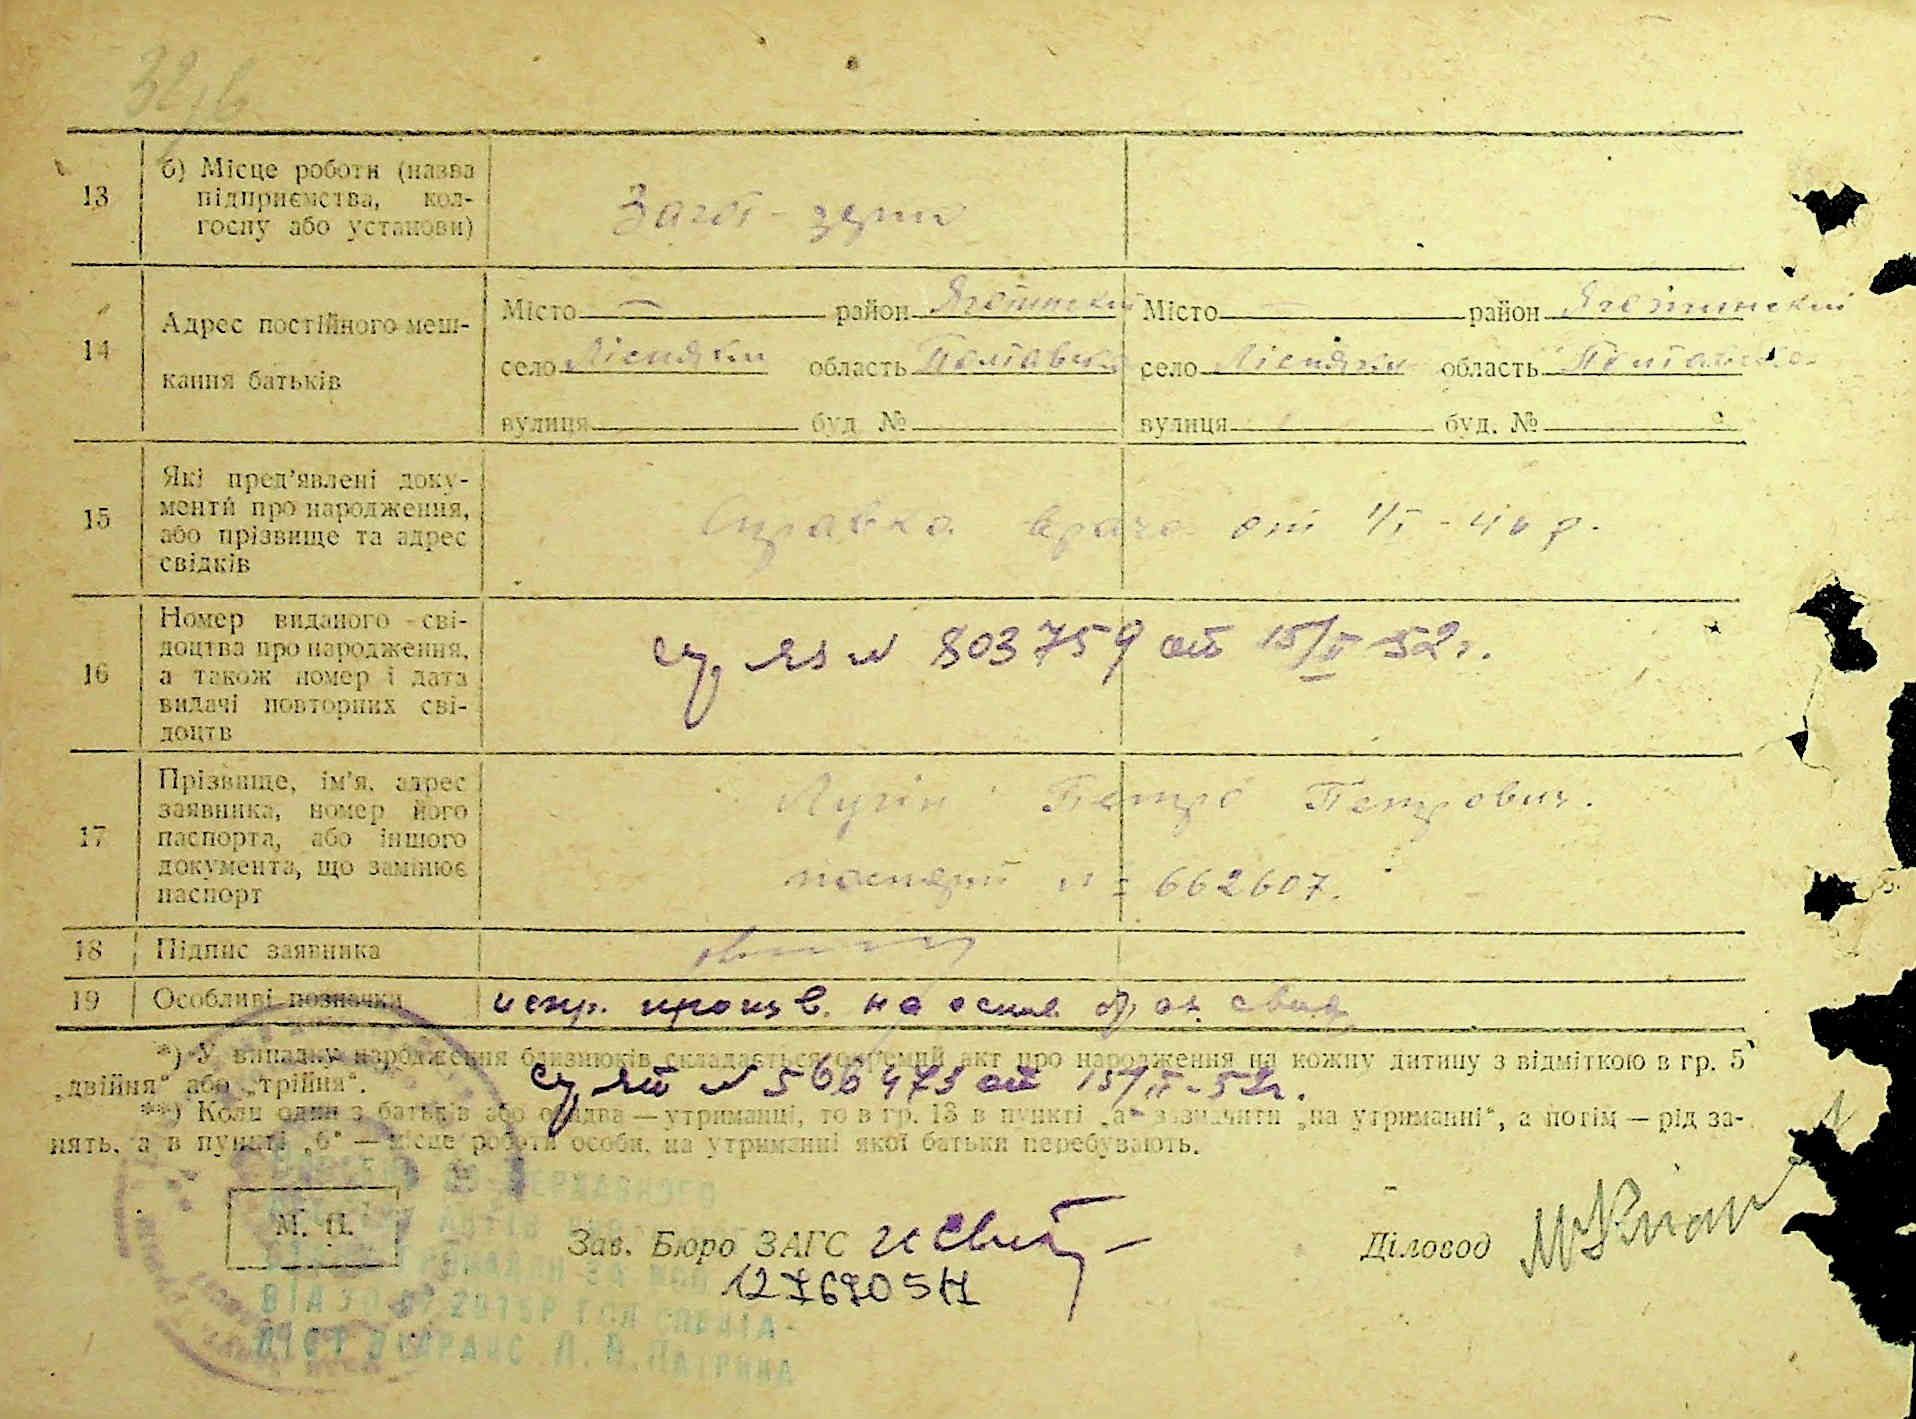 13 б) Місце роботи (назва
підприємства, кол-
госпу або установи)
Загот-зерно
14 Адрес постійного меш-
кання батьків
Місто район Яготинский Місто район Яготинский
село Лісняки область Полтавска село Лісняки область Полтавска
вулиця буд № вулиця буд. №
15 Які пред'явлені доку-
менти про народження,
або прізвище та адрес
свідків
Справка врача от 1/I-40 р.
16 Номер виданого сві-
доцтва про народження,
а також номер і дата
видачі повторних сві-
доцтв
№ 803759 от 15/II-52г.
17 Прізвище, ім'я, адрес
заявника, номер його
паспорта, або іншого
документа, що замінює
паспорт
Петро Петрович.
паспорт № 662607.
18 Підпис заявника
19 Особливі позначки
испр. произв. на основ.
*) У випадку народження близнюків складається окремий акт про народження на кожну дитину з відміткою в гр. 5
„двійня“ або „трійня“.
№ 566473 от 15/II-52г.
**) Коли один з батьків або обидва — утриманці, то в гр. 13 в пункті „а“ зазначити „на утриманні“, а потім — рід за-
нять, а в пункті „б“ — місце роботи особи, на утриманні якої батьки перебувають.
М. П.
Зав. Бюро ЗАГС
Діловод